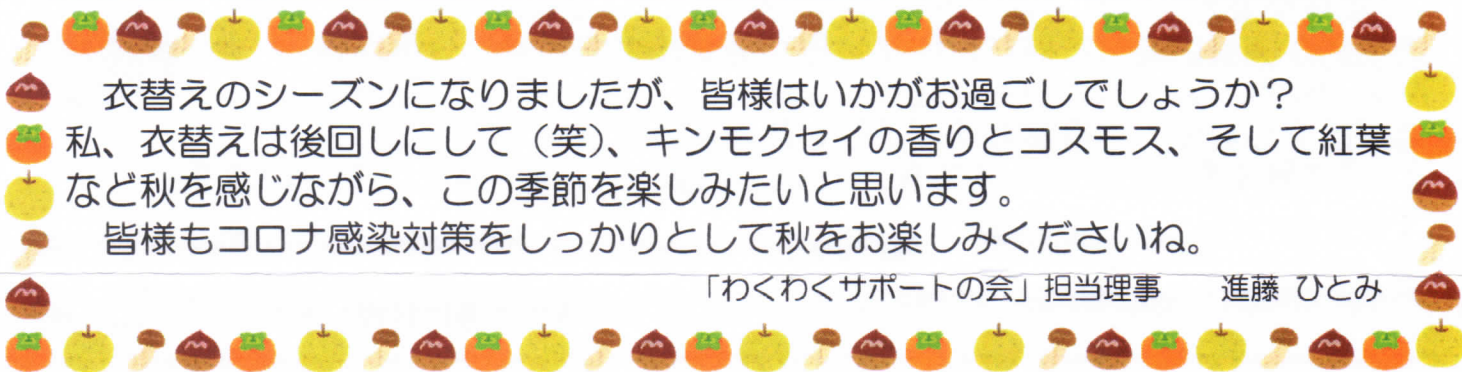 衣替えのシーズンになりましたが、皆様はいかがお過ごしでしょうか？
私、衣替えは後回しにして（笑）、キンモクセイの香りとコスモス、そして紅葉
など秋を感じながら、この季節を楽しみたいと思います。
皆様もコロナ感染対策をしっかりとして秋をお楽しみくださいね。
「わくわくサポートの会」担当理事　進藤 ひとみ